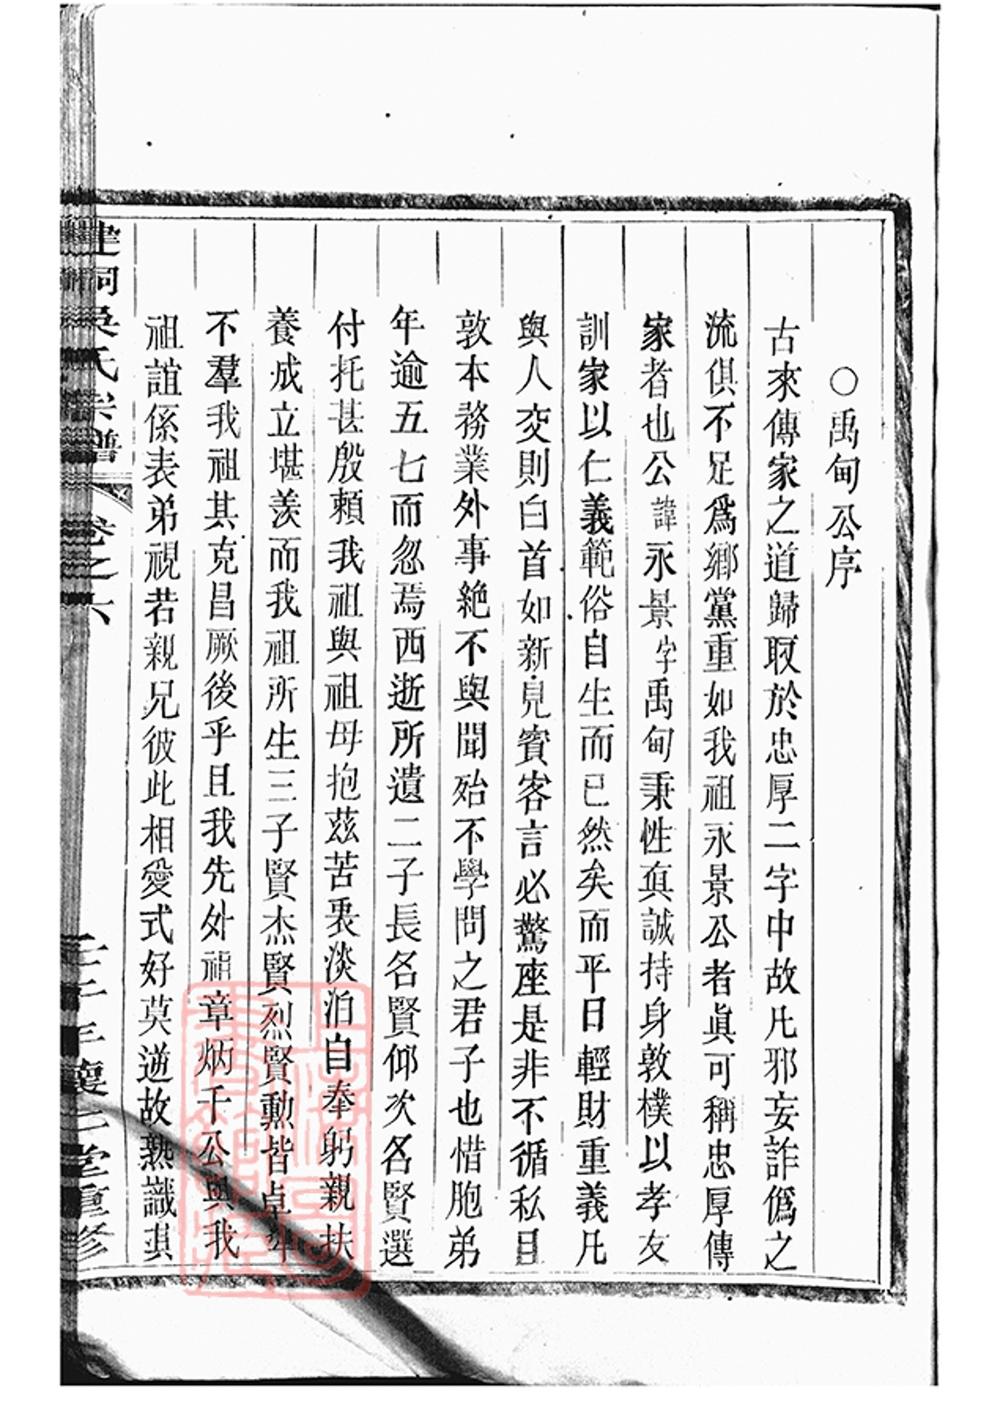 ○禹甸公序
古來傳家之道歸取於忠厚二字中故凡邪妄詐僞之
流俱不足爲鄉黨重如我祖永景公者眞可稱忠厚傳
家者也公諱永景字禹甸秉性眞誠持身敦樸以孝友
訓家以仁義範俗自生而已然矣而平日輕財重義凡
與人交則白首如新見賓客言必驚座是非不循私且
敦本務業外事絶不與聞殆不學問之君子也惜胞弟
年逾五七而忽焉西逝所遺二子長名賢仰次名賢選
付托甚殷賴我祖與祖母抱茲苦衷淡泊自奉躬親扶
養成立堪羨而我祖所生三子賢杰賢烈賢勳皆卓犖
不羣我祖其克昌厥後乎且我先外祖章炳千公與我
祖誼係表弟視若親兄彼此相愛式好莫逆故熟識其
建洞吳氏宗譜 卷之六 壬子年 堂重修